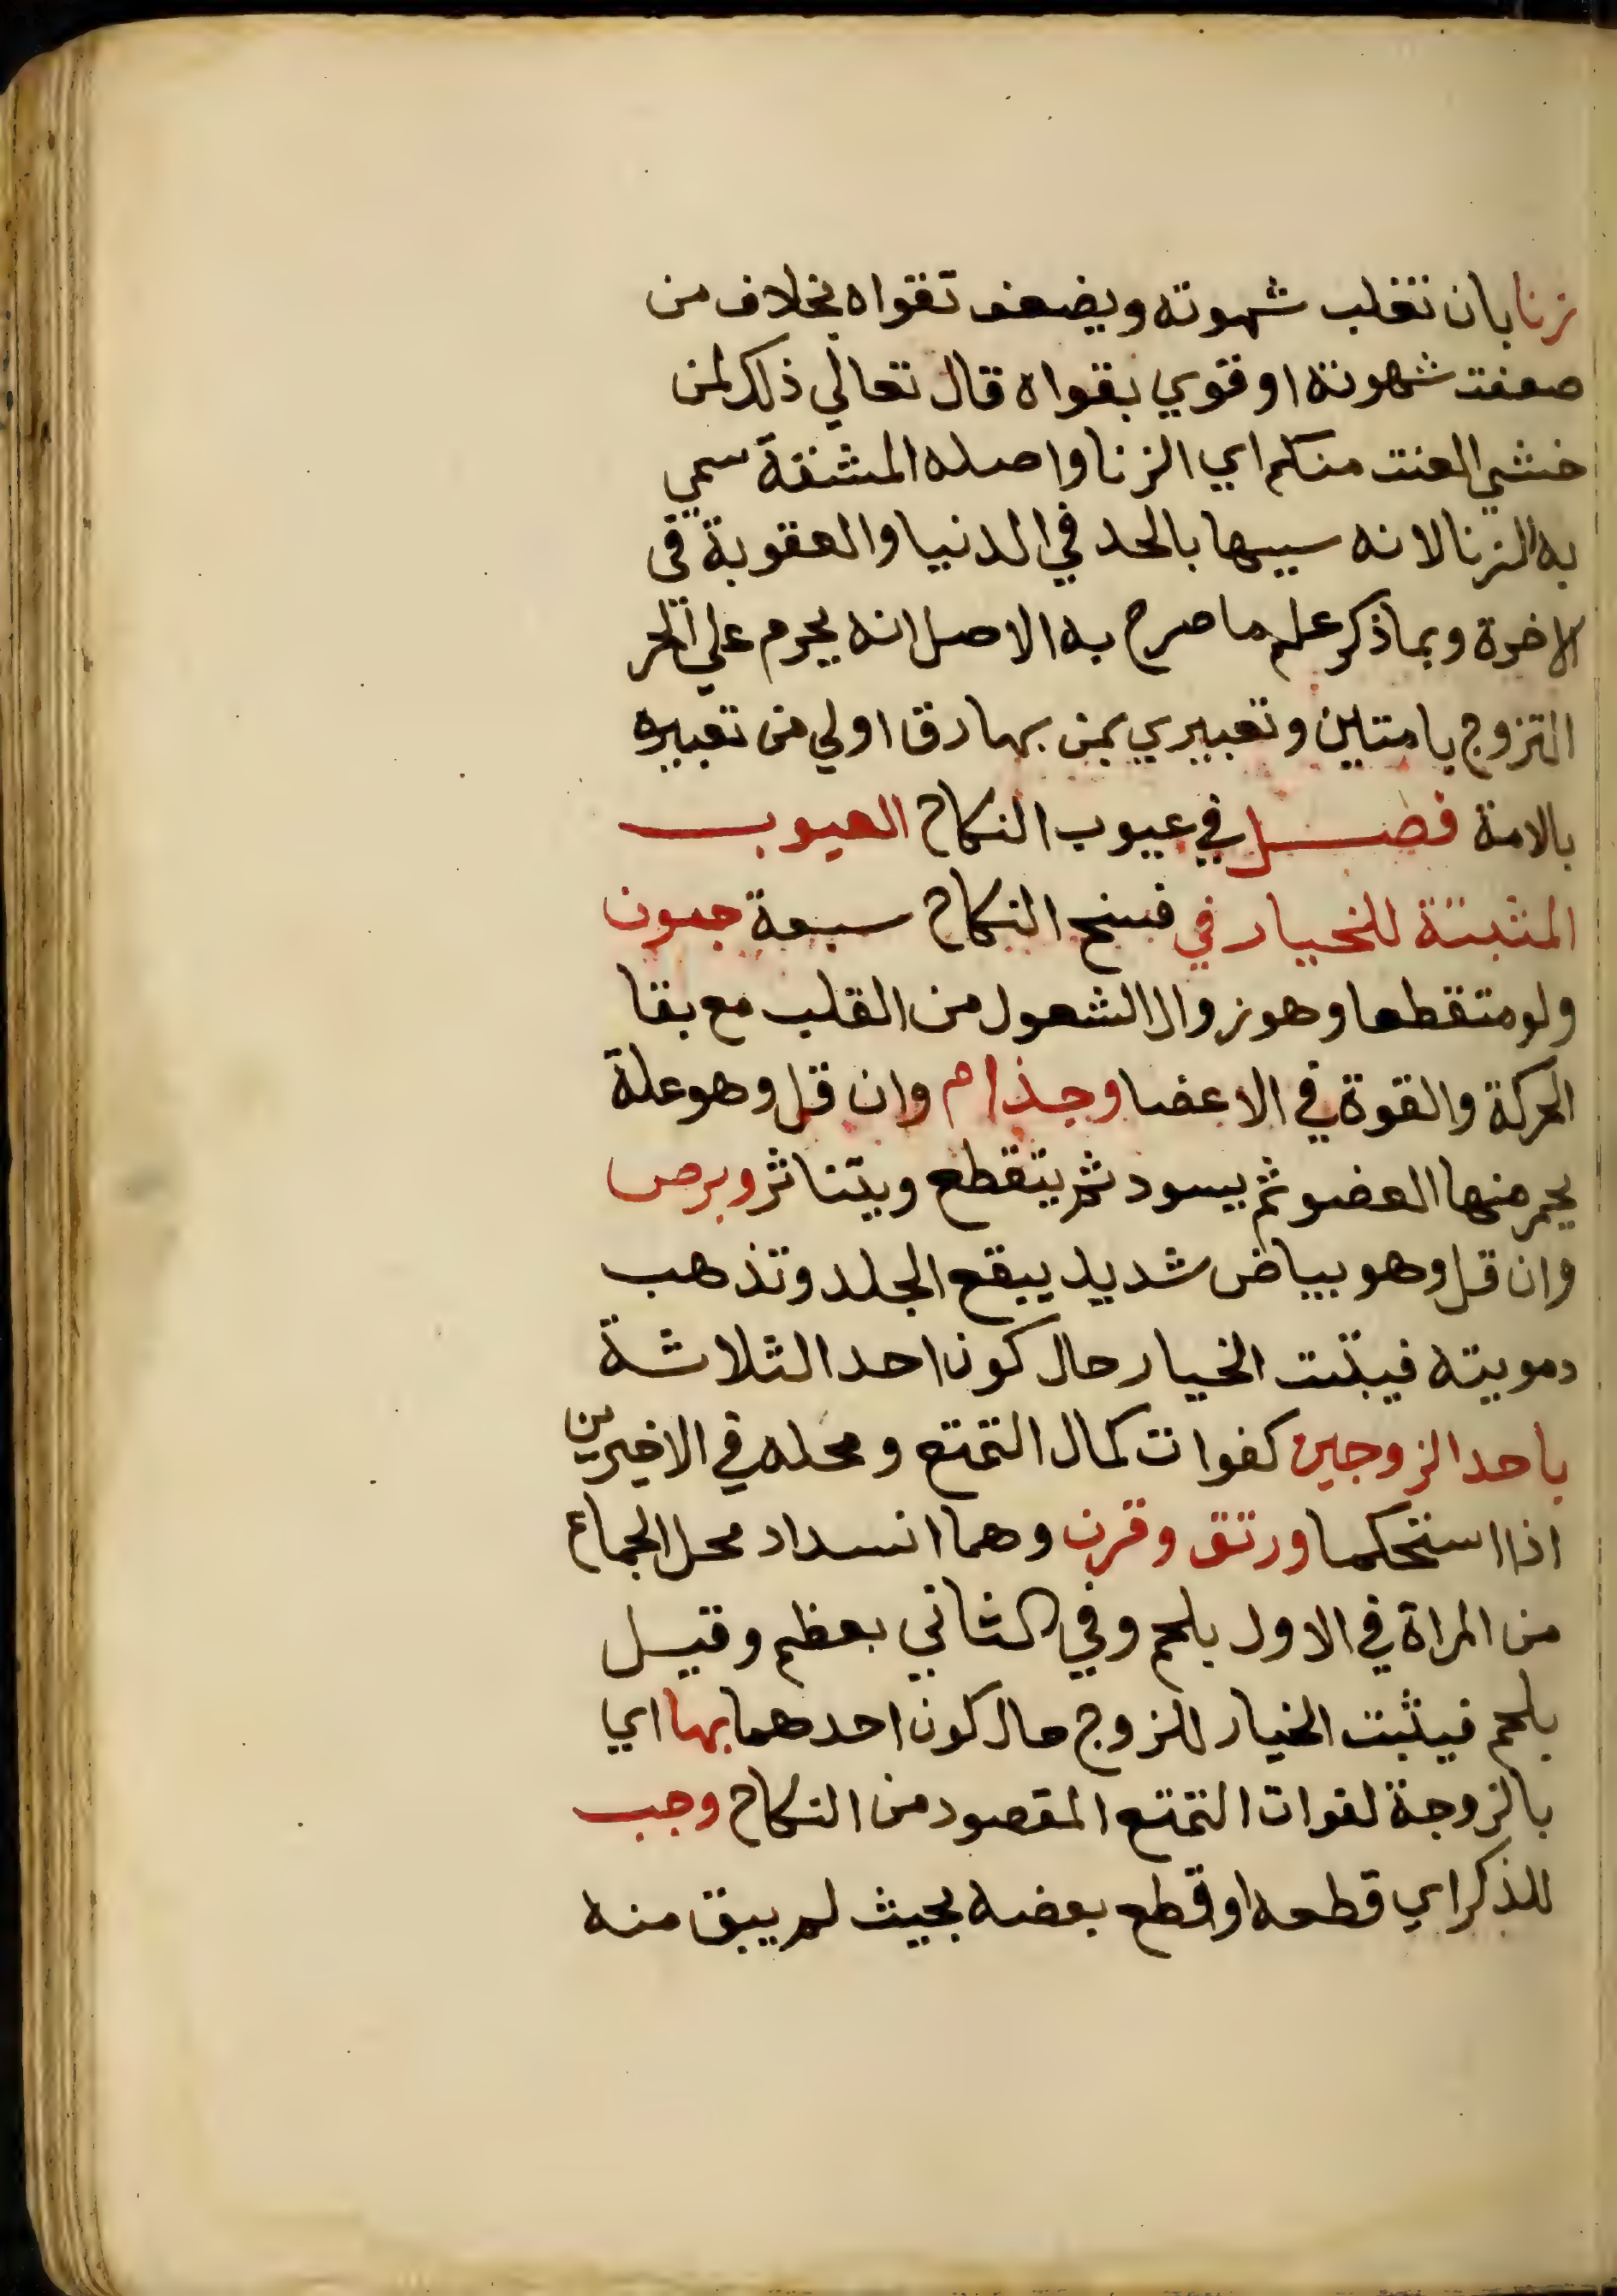 زنا بان تغلب شهوته ويضعف تقواه بخلاف من
ضعفت شهوته او قوي بقواه قال تعالي ذلك لمن
خشي العنت منكم اي الزنا واصله المشقة سمي
به الزنا لانه سببها بالحد في الدنيا والعقوبة في
الاخرة وبما ذكر علم ما صرح به الاصل انه يحرم علي الحر
التزوج بامتين وتعبيري بمن بها رق اولي من تعبيره
بالامة فصل في عيوب النكاح العيوب
المثبتة للخيار في فسخ النكاح سبعة جنون
ولو متقطعا وهو زوال الشعور من القلب مع بقا
الحركة والقوة في الاعضا وجذام وان قل وهو علة
يحمر منها العضو ثم يسود ثم يتقطع ويتناثر وبرص
وان قل وهو بياض شديد يبقع الجلد وتذهب
دمويته فيثبت الخيار حال كون احد الثلاثة
باحد الزوجين كفوات كمال التمتع ومحله في الاخيرين
اذا استحكما ورتق وقرن وهما انسداد محل الجماع
من المراة في الاول بلحم وفي الثاني بعظم وقيل
بلحم فيثبت الخيار للزوج حال كون احدهما بها اي
بالزوجة لفوات التمتع المقصود من النكاح وجب
للذكر اي قطعه او قطع بعضه بحيث لم يبق منه